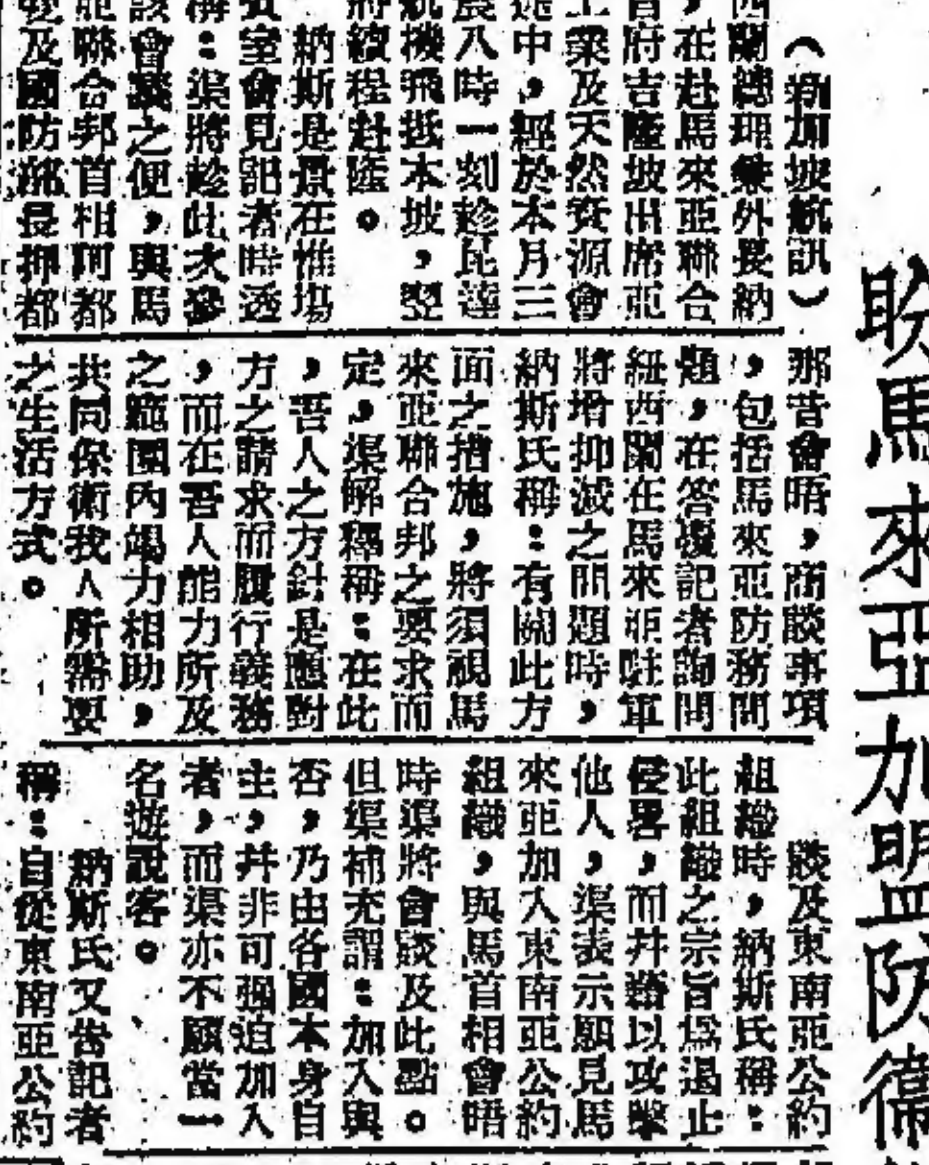 盼馬來亞加盟防衛
（新加坡航訊）
西蘭總理兼外長納
，在赴馬來亞聯合
首府吉隆坡出席亞
工業及天然資源會
途中，經於本月三
晨八時一刻趁昆達
航機飛抵本坡，翌
將續程赴隆。
納斯是景在惟塲
室會見記者時透
稱：渠將趁此次參
該會議之便，與馬
聯合邦首相阿都
及國防部長押都
那昔會晤，商談事項
，包括馬來亞防務問
題，在答覆記者詢問
紐西蘭在馬來亞駐軍
將增抑減之問題時，
納斯氏稱：有關此方
面之措施，將須視馬
來亞聯合邦之要求而
定，渠解釋稱：在此
，吾人之方針是應對
方之請求而履行義務
，而在吾人能力所及
之範圍內竭力相助，
共同保衛我人所需要
之生活方式。
談及東南亞公約
組織時，納斯氏稱：
此組織之宗旨爲遏止
侵畧，而幷藉以攻擊
他人，渠表示願見馬
來亞加入東南亞公約
組織，與馬首相會晤
時渠將會談及此點。
但渠補充謂：加入與
否，乃由各國本身自
主，幷非可強迫加入
者，而渠亦不願當一
名遊說客。
納斯氏又告記者
稱：自從東南亞公約